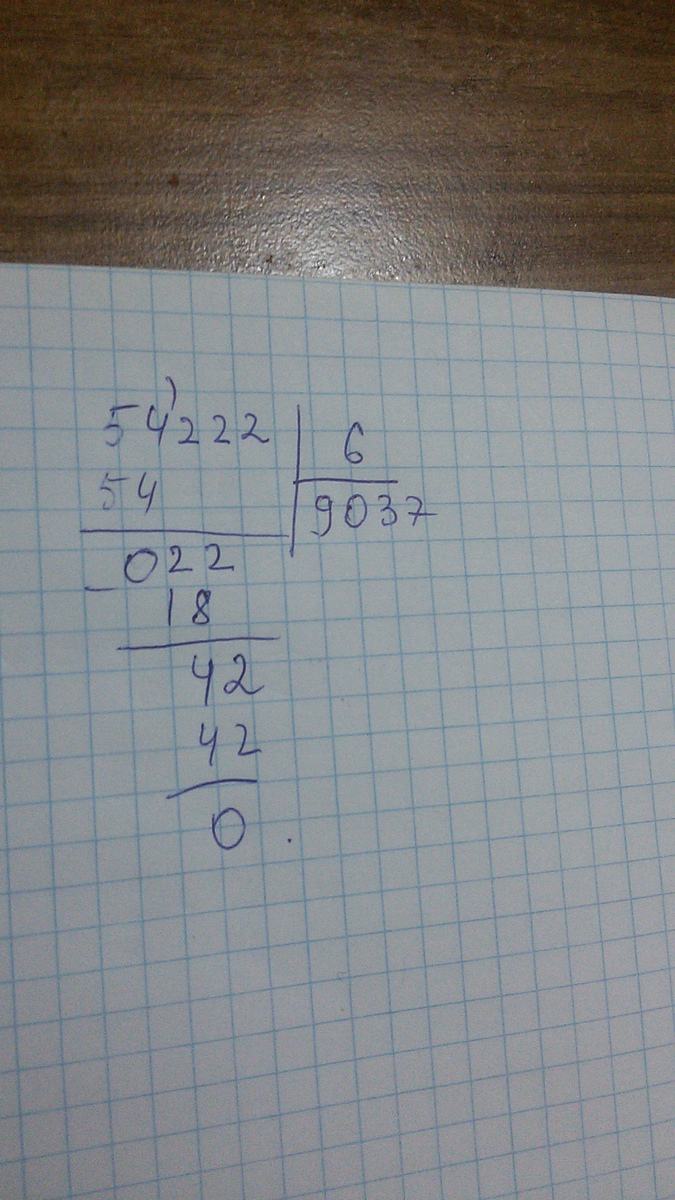 54222 6
54 9037
-022
18
42
42
0.